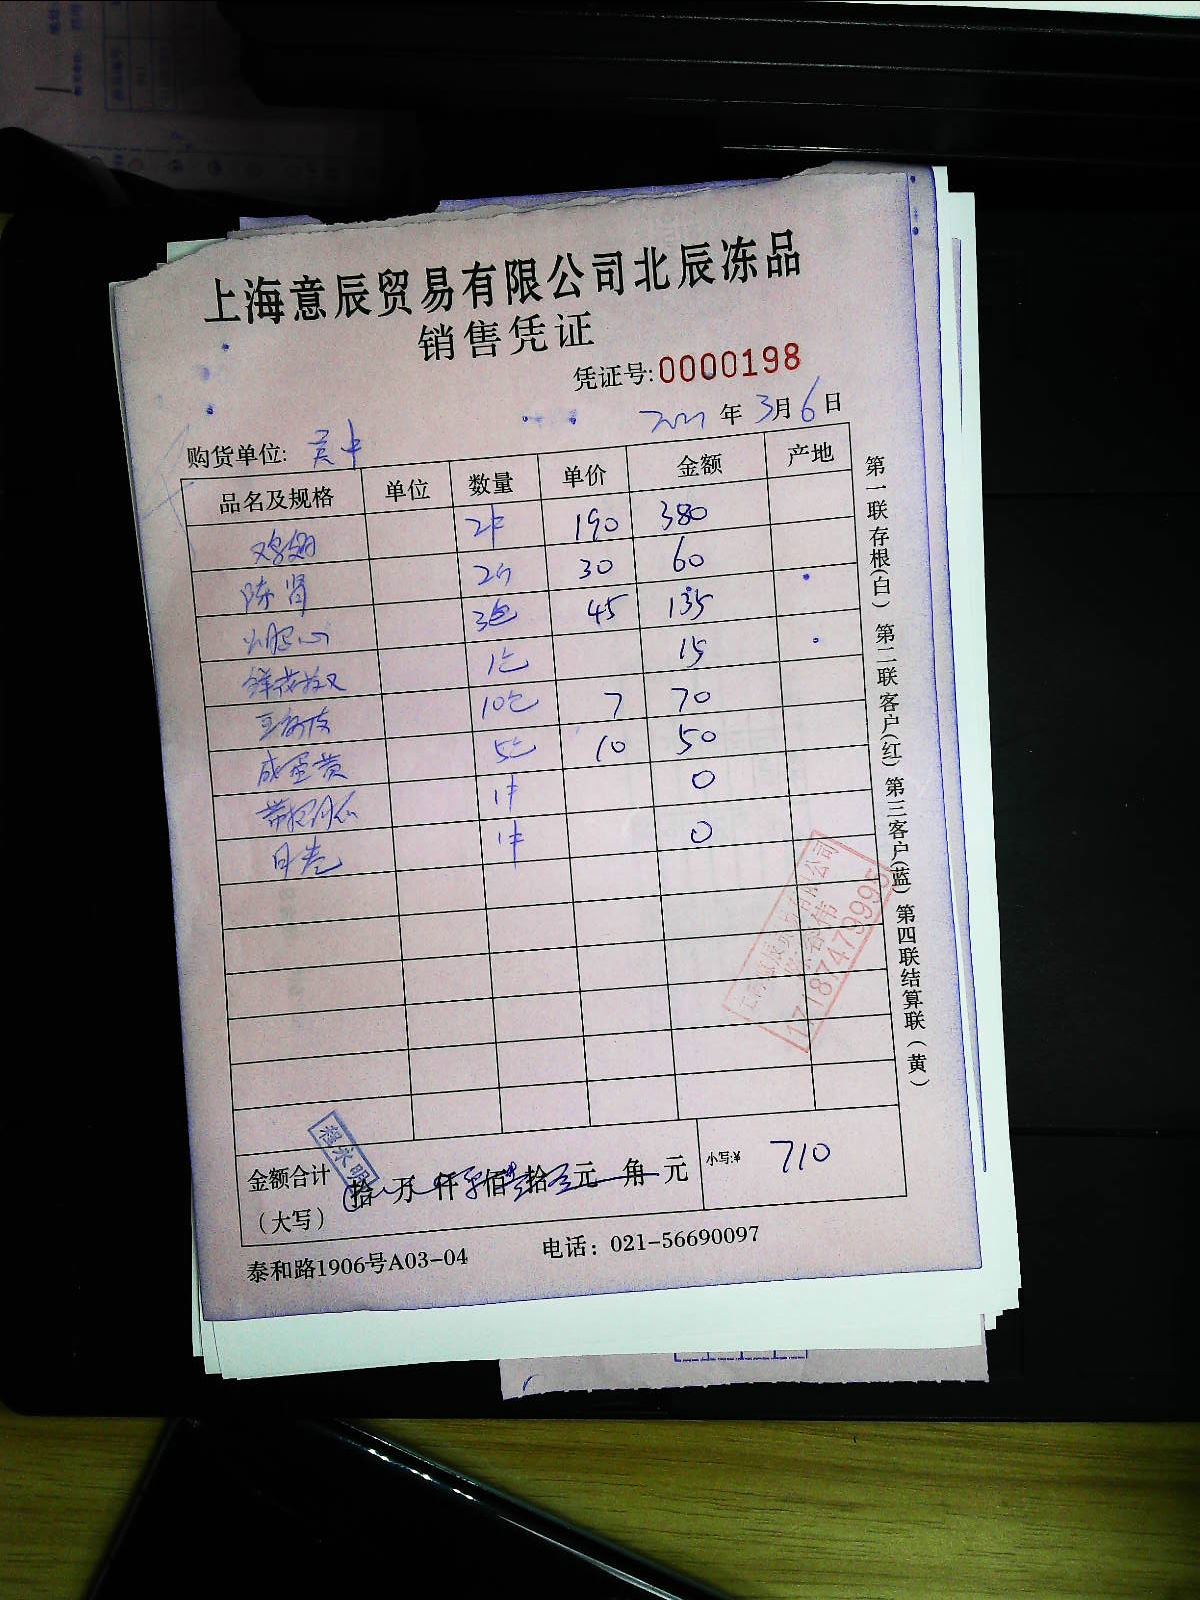 上海意辰贸易有限公司北辰冻品
销售凭证
凭证号:0000198
2021年3月6日
购货单位: 吴中
品名及规格 单位 数量 单价 金额 产地
鸡翅 2件 190 380
陈肾 2个 30 60
3包 45 135
鲜花椒 1包 15
豆腐皮 10包 7 70
咸蛋黄 5包 10 50
1件 0
1件 0
金额合计（大写） 拾 万 仟 佰 拾 元 角 元 小写:¥ 710
泰和路1906号A03-04 电话：021-56690097
第一联存根(白) 第二联客户(红) 第三客户(蓝) 第四联结算联(黄)
17187479995
程永明